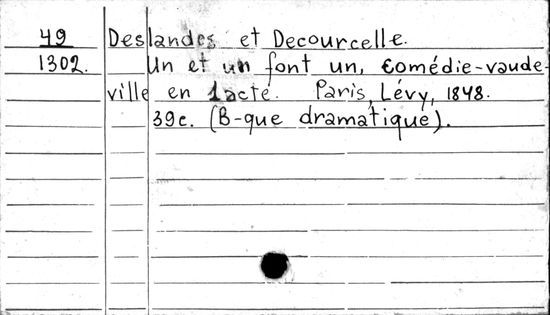 49 Deslandes et Decourcelle.
1302. Un et un font un, comédie-vaude-
ville en 1 acte. Paris, Lévy, 1848.
39c. (B-que dramatique).